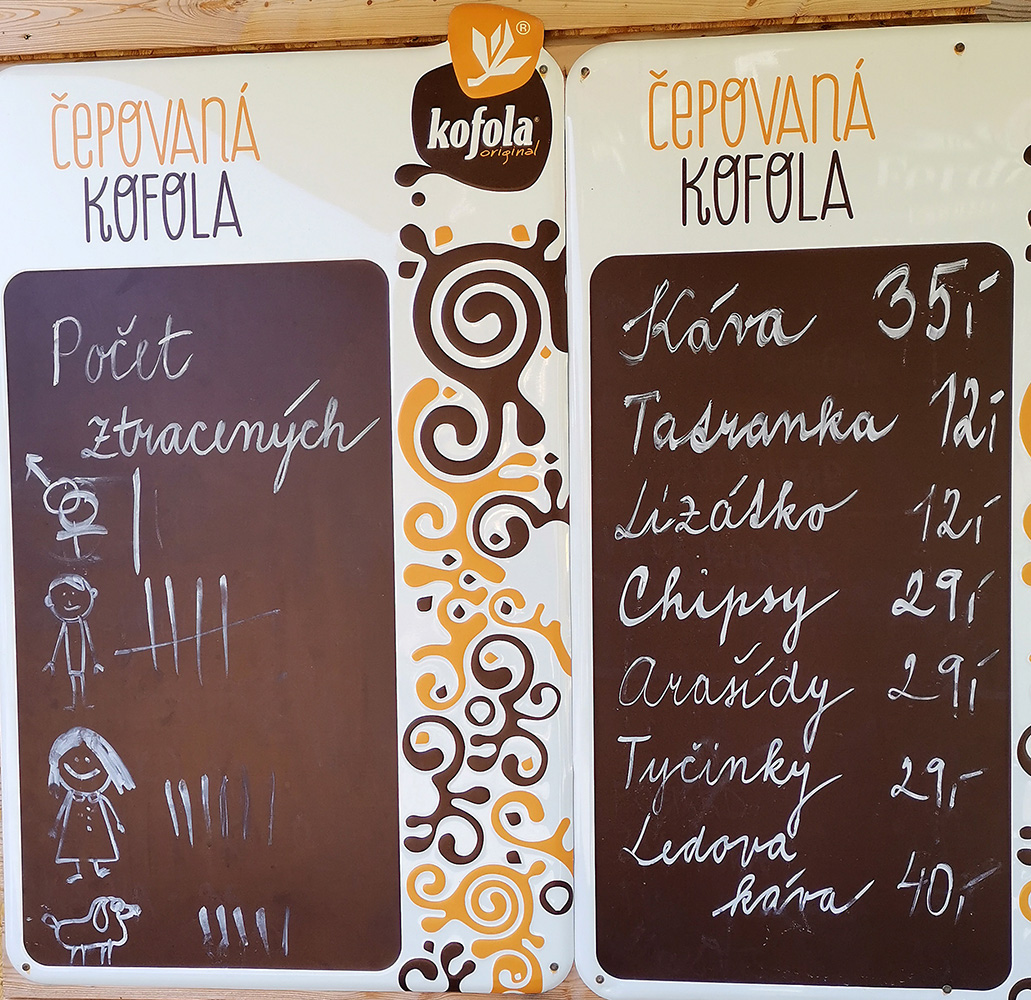 ČEPOVANÁ
KOFOLA
kofola®
original
Počet
ztracených
ČEPOVANÁ
KOFOLA
Káva 35,-
Tatranka 12,-
Lízátko 12,-
Chipsy 29,-
Arašídy 29,-
Tyčinky 29,-
Ledová
káva 40,-